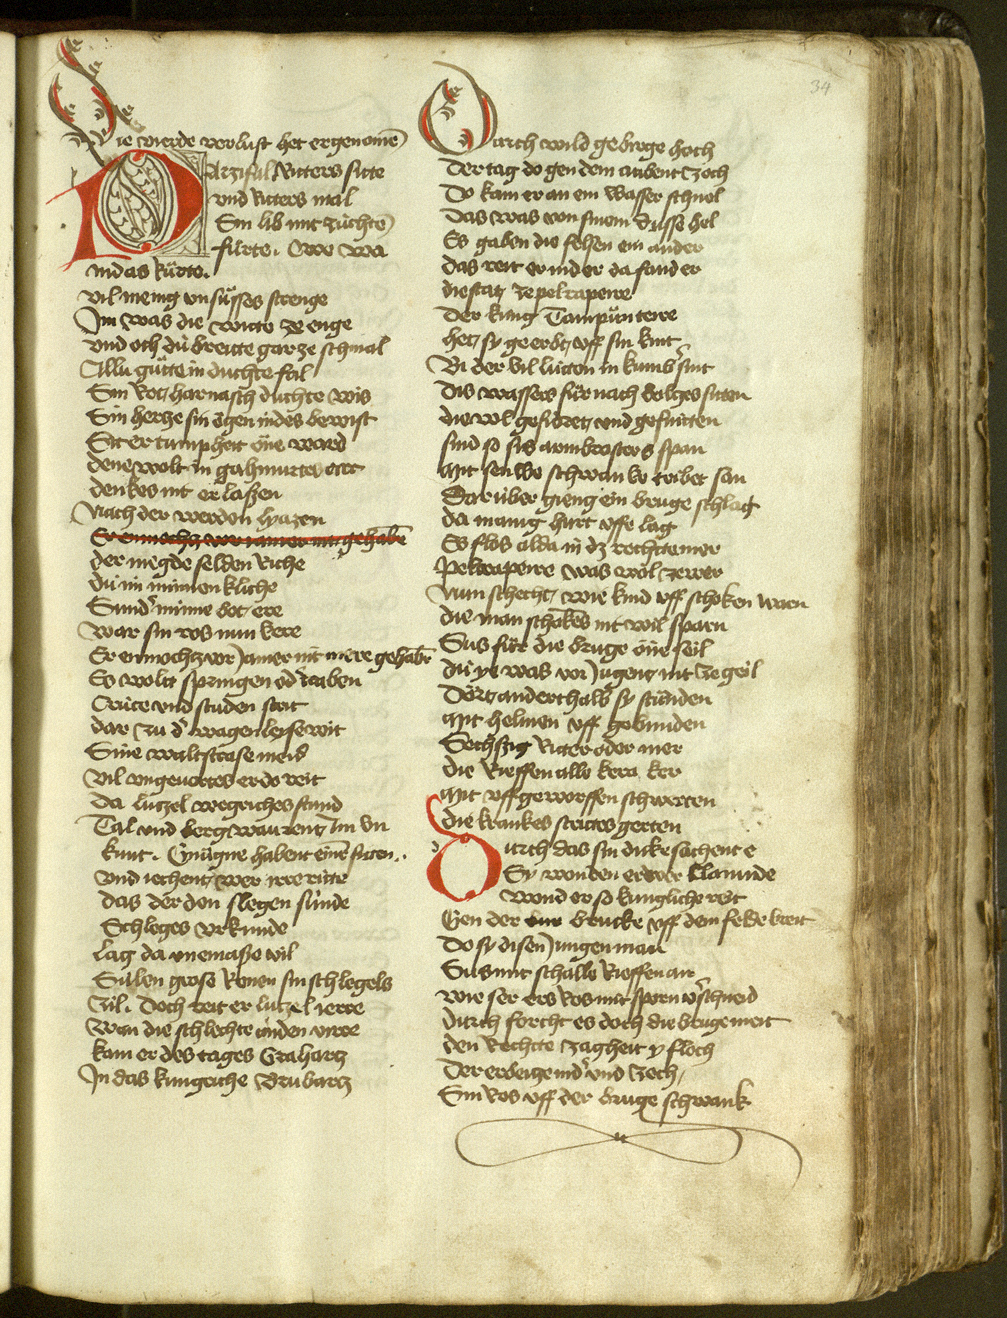 34
Die vierde verlust het er genomē
Parzifal Ritters sitte
vnd Ritters mal
Sin lib mit züchtē
fürte. Owe wa
in das Rürte.
vil menig vnsüsses strenge
Im was die witte ze enge
vnd och dü breitte gar ze schmal
Allü gütte in duchte fal
Sin Rot harnasch duchte wis
Sin hertze sin ögen in des bewist
Sit er tumpheit öne ward
dene wolt in gahmurtes art
denkes nit erlassen
Nach der werden lyazen
Er enmocht vor iamer nit gehabē
der megde selden Riche
dü im minnenkliche
Sundˢ minne bot ere
war sin ros nun kere
Er enmocht vor Jamer nit mere gehabē
Es wolt springen odˢ traben
Crütce vnd studen strit
dar zu dˢ wagen leise wit
Sine waltstrase meid
vil vngevertes er do reit
da lützel wegriches stund
Tal vnd berg warent Im vn
kunt. Gnügne habent einē sitten
vnd iechent wer irre ritte
das der den slegen fünde
Schleges vrkunde
Lag da vnemasse vil
Sülen grose Ronen sin schlegels
Zil. Doch reit er lützel ierre
Wan die schlechte önden virre
kam er des tages Grahartz
In das küngriche Brubartz
Durch wild gebirge hoch
Der tag do gen dem aubent zoch
Do kam er an ein wasser schnel
Das was von sinem dusse hel
Es gaben die felsen ein ander
das reit er nider da fand er
die stat ze pelrapeire
Der küng Tampunteire
het sy geerbt vff sin kint
Bi der vil lütten in kumbˢ sint
Das wassers für nach bolzes sitten
die wol gefidret vnd gesnitten
sind so sis armbrosters span
mit senwe schwanke tribet san
Dar über gieng ein bruge schlag
da manig hurt vffe lag
Es flos alda in dz rechte mer
Pelrapeire was wol ze wer
Nun schecht wie kind vff schoken varn
die man schokēs nit wil sparn
Sus für die bruge öne seil
dü ye was vor Jugent nit ze geil
Dört anderthalb sy stünden
mit helmen vff gebunden
Sechszig Ritter oder mer
die Rieffen alle kera ker
mit vff geworffen schwerten
die krankes strites gerten
Durch das sin dike sachent e
Sy wonden er wer Clamide
wond er so künglich reit
Gen der brucke vff dem felde breit
Do sy disen Jungen man
Sus mit schalle Rieffen an
wie ser ers Ros mit sporn vˢschneid
durch forcht es doch die bruge meit
den Rechte zagheit y floch
Der erbeitze nidˢ vnd zoch
Sin Ros vff der bruge schwank